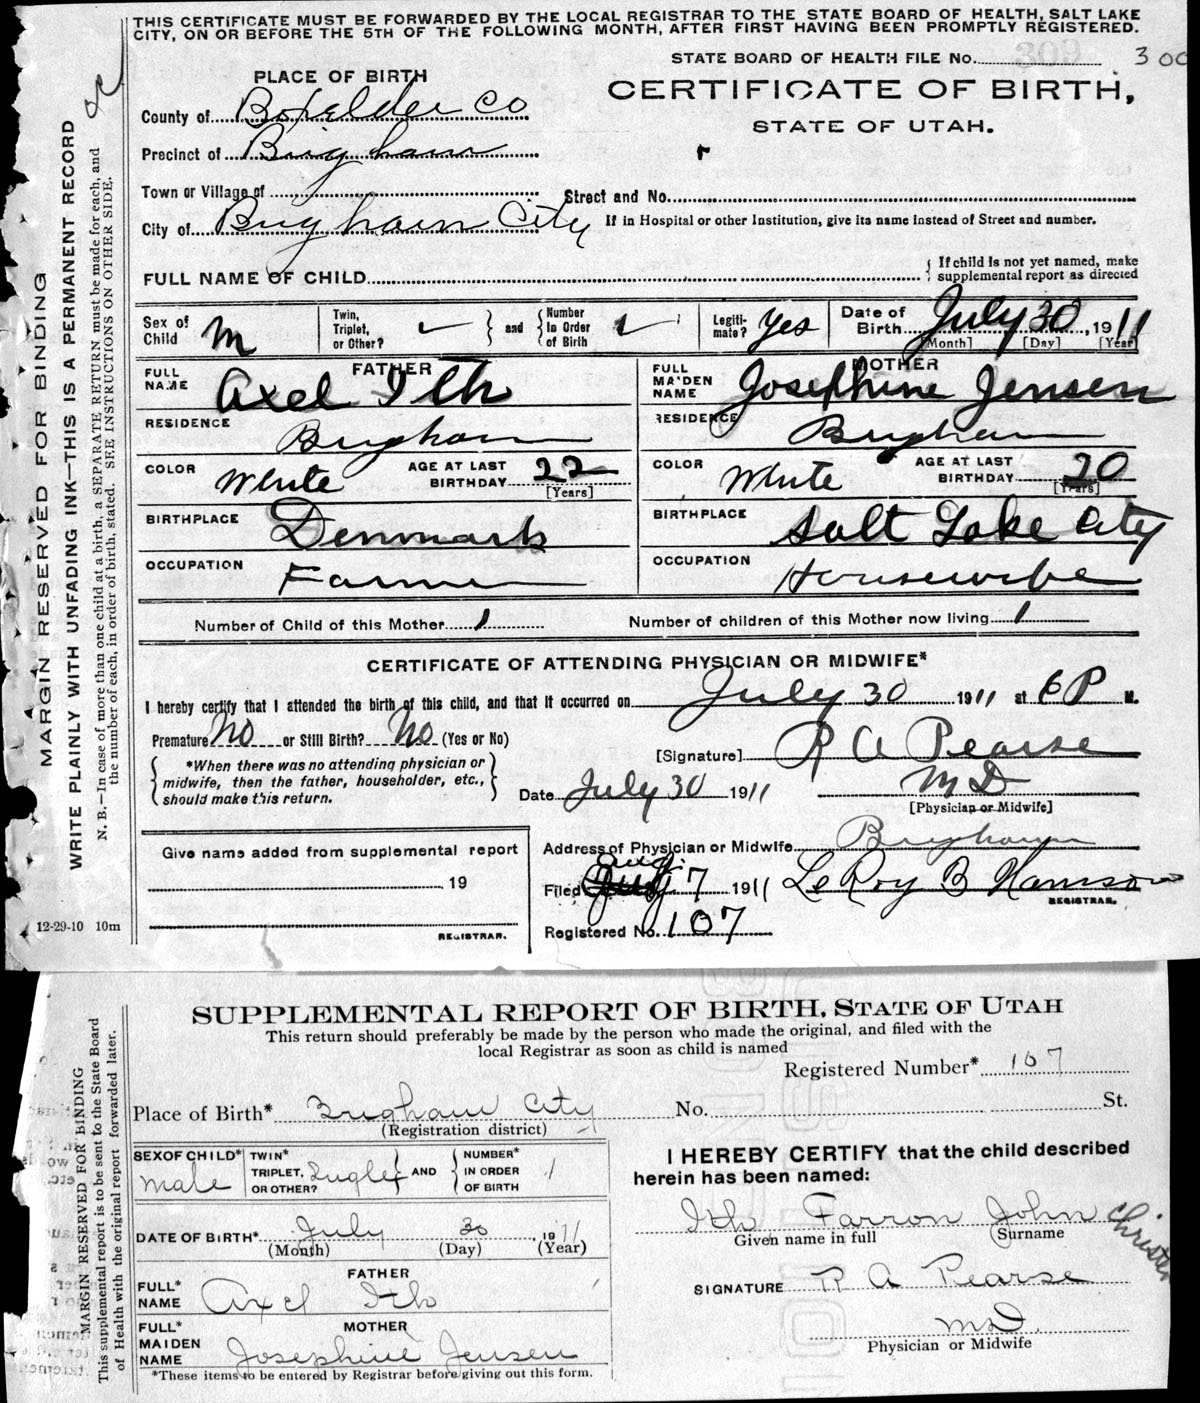 THIS CERTIFICATE MUST BE FORWARDED BY THE LOCAL REGISTRAR TO THE STATE BOARD OF HEALTH, SALT LAKE
CITY, ON OR BEFORE THE 5TH OF THE FOLLOWING MONTH, AFTER FIRST HAVING BEEN PROMPTLY REGISTERED.
STATE BOARD OF HEALTH FILE No. 309 300
PLACE OF BIRTH
CERTIFICATE OF BIRTH,
STATE OF UTAH.
County of Boxelder Co
Precinct of Brigham
Town or Village of
Street and No.
City of Brigham City
If in Hospital or other Institution, give its name instead of Street and number.
FULL NAME OF CHILD
If child is not yet named, make
supplemental report as directed
Sex of Child M
Twin, Triplet, or Other? ✓
and
Number In Order of Birth ✓
Legiti-mate? Yes
Date of Birth July 30, 1911
[Month] [Day] [Year]
FATHER
FULL NAME Axel Ith
MOTHER
FULL MAIDEN NAME Josephine Jensen
RESIDENCE Brigham
RESIDENCE Brigham
COLOR White
AGE AT LAST BIRTHDAY 22
[Years]
COLOR White
AGE AT LAST BIRTHDAY 20
[Years]
BIRTHPLACE Denmark
BIRTHPLACE Salt Lake City
OCCUPATION Farmer
OCCUPATION Housewife
Number of Child of this Mother 1
Number of children of this Mother now living 1
CERTIFICATE OF ATTENDING PHYSICIAN OR MIDWIFE*
I hereby certify that I attended the birth of this child, and that it occurred on July 30 1911 at 6 P M.
Premature No or Still Birth? No (Yes or No)
[Signature] R A Pearse
*When there was no attending physician or
midwife, then the father, householder, etc.,
should make this return.
Date July 30 1911
M D
[Physician or Midwife]
Give name added from supplemental report
Address of Physician or Midwife Brigham
19
Filed Aug. 7 1911 LeRoy B
REGISTRAR.
Registered No. 107
REGISTRAR.
12-29-10 10m
MARGIN RESERVED FOR BINDING
WRITE PLAINLY WITH UNFADING INK—THIS IS A PERMANENT RECORD
N. B.—In case of more than one child at a birth, a SEPARATE RETURN must be made for each, and
the number of each, in order of birth, stated. SEE INSTRUCTIONS ON OTHER SIDE.
SUPPLEMENTAL REPORT OF BIRTH, STATE OF UTAH
This return should preferably be made by the person who made the original, and filed with the
local Registrar as soon as child is named
Registered Number* 107
Place of Birth* Brigham City No. St.
(Registration district)
SEX OF CHILD* Male
TWIN* TRIPLET, OR OTHER? Single
AND
NUMBER* IN ORDER OF BIRTH 1
I HEREBY CERTIFY that the child described
herein has been named:
Ith Farron John
Given name in full (Surname
DATE OF BIRTH* July 30, 1911
(Month) (Day) (Year)
SIGNATURE R A Pearse
FATHER
FULL* NAME Axel Ith
M D.
Physician or Midwife
MOTHER
FULL* MAIDEN NAME Josephine Jensen
*These items to be entered by Registrar before giving out this form.
MARGIN RESERVED FOR BINDING
This supplemental report is to be sent to the State Board
of Health with the original report forwarded later.